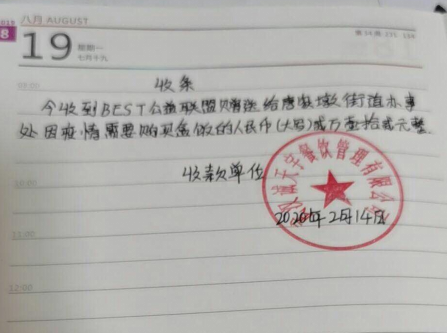 八月 AUGUST
8
19
星期一
七月十九
收条
今收到BEST公益联盟 给唐家墩街道办事
处因疫情需要购买盒饭的人民币(大写)贰万壹拾贰元整.
收款单位
天宇餐饮管理有限公
2020年2月14日
10:00
11:00
12:00